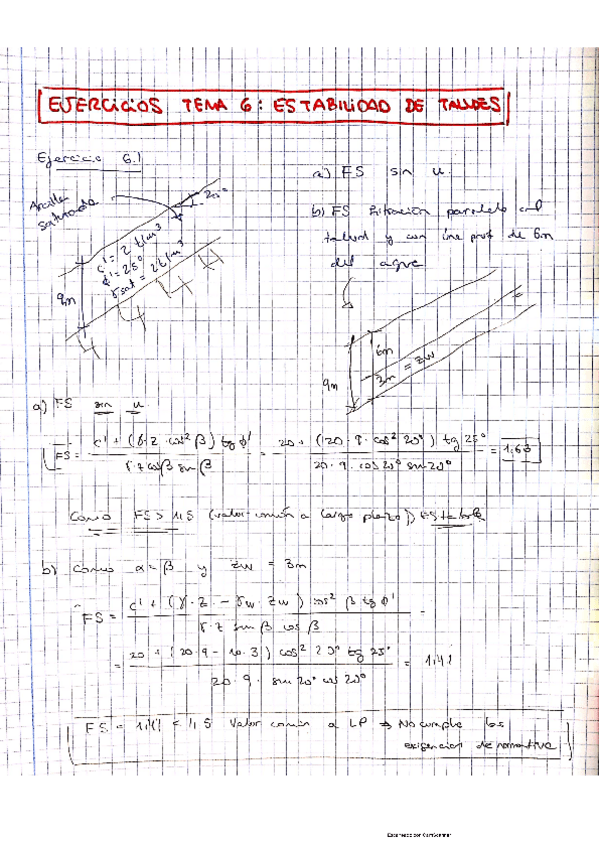 EJERCICIOS TEMA 6: ESTABILIDAD DE TALUDES
Ejercicio 6.1
a) FS sin u.
Arcilla
saturada
20°
b) FS filtración paralela al
talud y con una prof de 6m
del agua
c' = 2 t/m³
φ' = 25°
γsat = 2 t/m³
9m
6m
3m = zw
9m
a) FS sin u
FS = c' + (γ·z·cos² β) tg φ' / γ·z cosβ sin β = 20 + (20·9·cos² 20°) tg 25° / 20·9·cos20° sin20° = 1,63
Como FS > 1,5 (valor común a largo plazo) Estable
b) como α = β y zw = 3m
FS = c' + (γ·z - γw zw) cos² β tg φ' / γ·z sin β cos β =
= 20 + (20·9 - 10·3) cos² 20° tg 25° / 20·9· sin 20° cos 20° = 1,41
FS = 1,41 < 1,5 Valor común a LP ⇒ No cumple las
exigencias de normativa
Escaneado con CamScanner